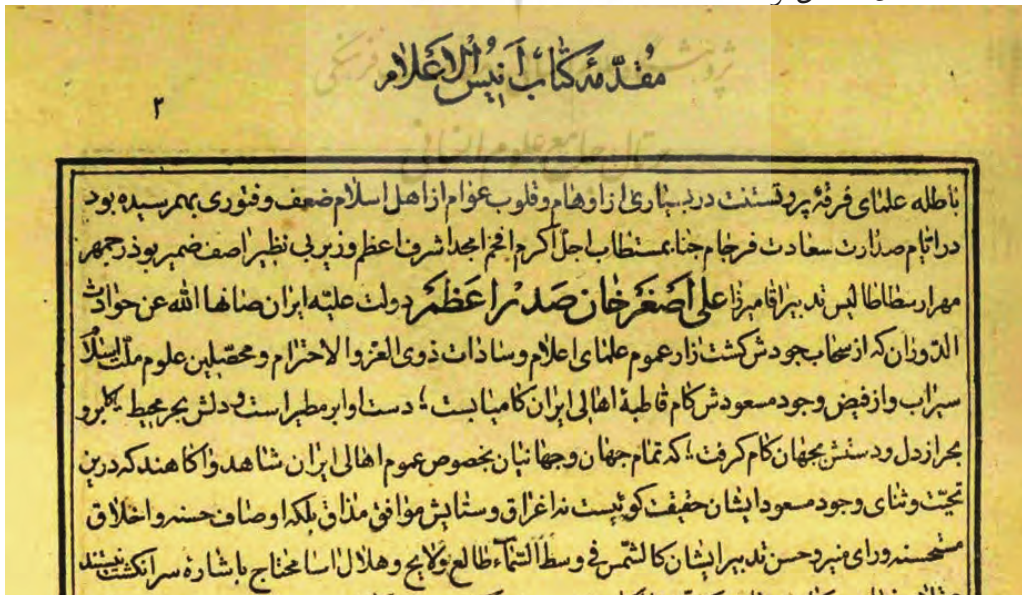 مقدّمهٔ كتاب انيس الاعلام
٢
باطله علمای فرقهٔ پروتستنت در بسیاری از اوهام و قلوب عوام از اهل اسلام ضعف و فتوری بهم رسیده بود
در ایّام صدارت سعادت فرجام جنابمستطاب اجلّ اکرم افخم امجد اشرف اعظم وزیر بی نظیر اصف ضمیر بوذرجمهر
مهر ارسطاطالیس تدبیر اقا میرزا علی اصغر خان صدر اعظم دولت علیّه ایران صانها الله عن حوادث
الدّوران که از سحاب جودش کشت زار عموم علمای اعلام و سادات ذوی العز و الاحترام و محصّلین علوم ملّت اسلام
سیراب و از فیض وجود مسعودش کام قاطبهٔ اهالی ایران کامیابست ؛ دست او ابر مطیر است و دلش بحر محیط ؛ ابر و
بحر از دل و دستش بجهان کام گرفت ؛ که تمام جهان و جهانیان بخصوص عموم اهالی ایران شاهد و اکاهند که درین
تحیّت و ثنای وجود مسعود ایشان حقیقت کوئیست نه اغراق و ستایش موافق مذاق بلکه اوصاف حسنه و اخلاق
مستحسنه و رای منیر و حسن تدبیر ایشان کالشّمس فی وسط السّماء طالع و لایح و هلال اسا محتاج باشارهٔ سر انکشت نیستند